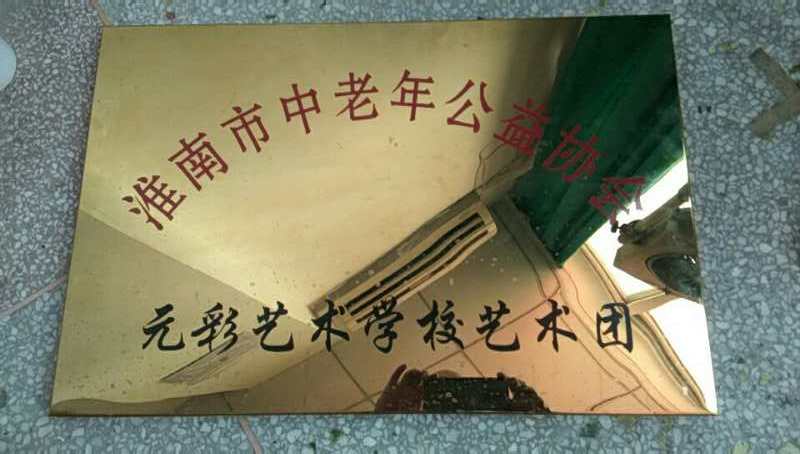 淮南市中老年公益协会
元彩艺术学校艺术团